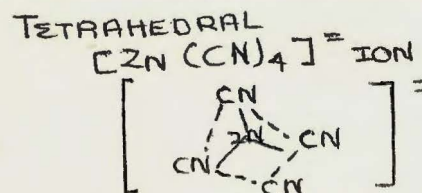 TETRAHEDRAL
[ZN (CN)4]= ION
[ CN ]=
ZN CN
CN
CN